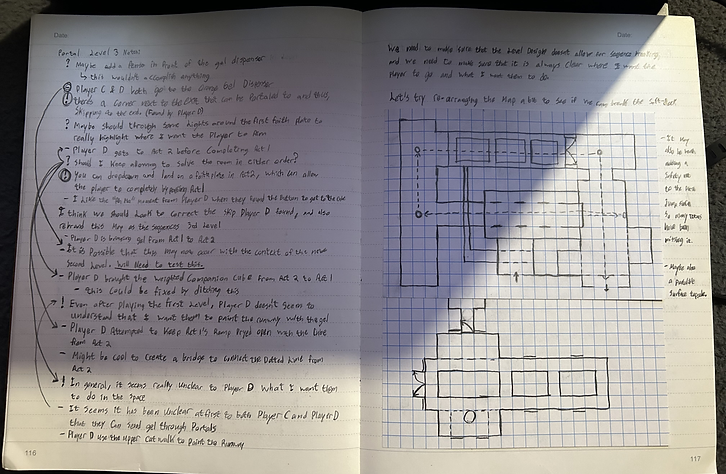 Date
Portal Level 3 Notes
? Maybe add a fence in front of the gel dispenser
↳ this wouldn't accomplish anything
! Player C & D both got to the orange Gel Dispenser
! theres a corner next to the exit that can be Portaled to and this,
skipping to the exit (found by Player D)
? Maybe should through some lights around the first faith plate to
really highlight where I want the Player to Aim
- Player D gets to Act 2 before completing Act 1
? should I keep allowing to solve the room in either order?
! You can dropdown and land on a faith plate in Act 2, which can allow
the player to completely bypassing Act 1
- I like the "Oh, No" moment from Player D when they found the button to get to the cube
I think we should look to correct the skip Player D found, and also
rebrand this Map as the sequences 3rd Level
- Player D is bringing gel from Act 1 to Act 2
- It is Possible that this may not occur with the context of the new
Second Level. Will Need to test this.
- Player D brought the Weighted Companion Cube from Act 2 to Act 1
- this could be fixed by ditching this
! Even after playing the first Level, Player D doesn't seem to
understand that I want them to paint the runway with the gel
- Player D Attempted to keep Act 1's Ramp Pryed open with the Cube
from Act 2
- Might be cool to create a bridge to connect the Dotted line from
Act 2
! In general, it seems really unclear to Player D what I want them
to do in the space
- It seems it has been unclear at first to both Player C and Player D
that they can send gel through Portals
- Player D use the upper catwalk to Paint the Runway
116
Date
We need to make sure that the Level Design doesn't allow for sequence breaking,
and we need to make sure that it is always clear where I want the
Player to go and what I want them to do.
Let's try re-arranging the Map a bit to see if we can break the soft-lock.
- It may
also be worth
adding a
Safety net
to the first
Jump
so many testers
have been
missing it.
- Maybe also
a portable
Surface
117